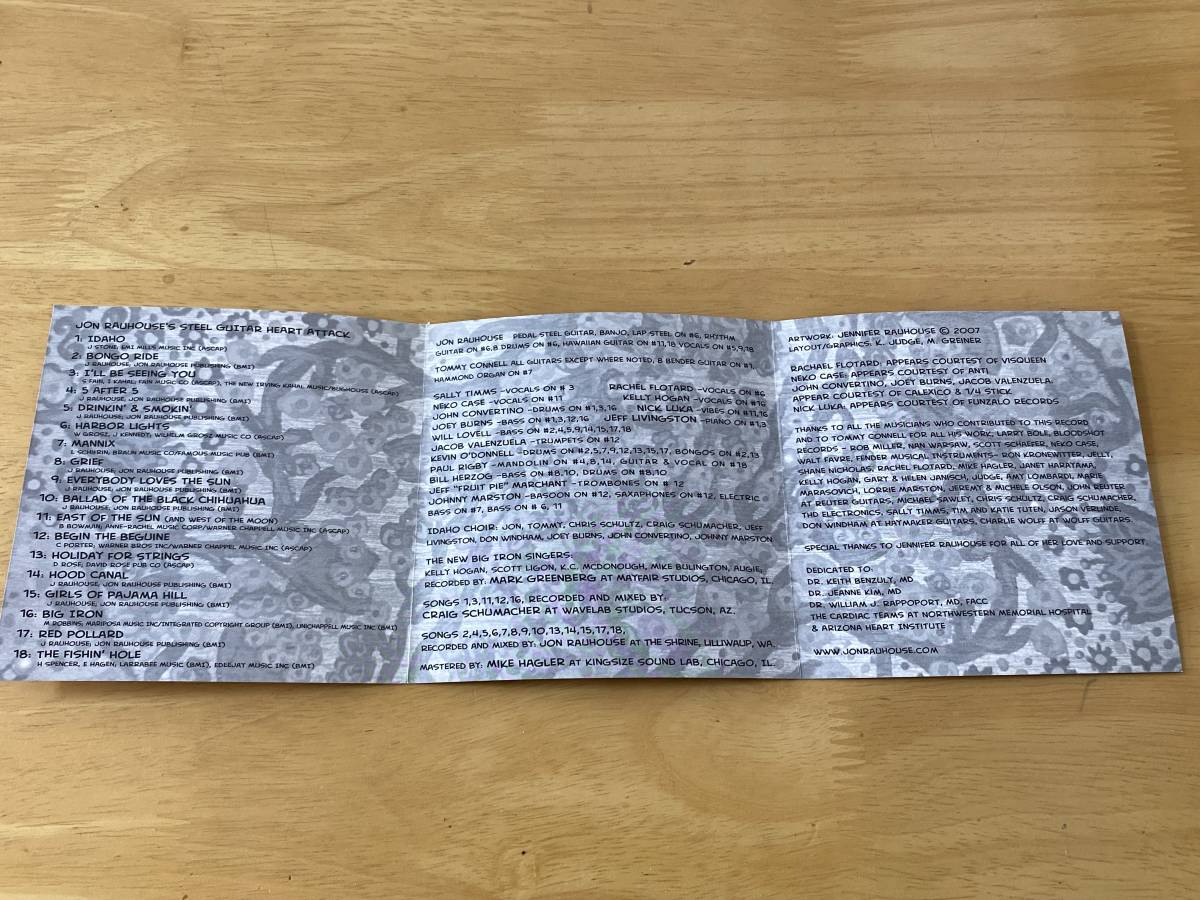 JON RAUHOUSE'S STEEL GUITAR HEART ATTACK
1. IDAHO
J STONE, EMI MILLS MUSIC INC (ASCAP)
2: BONGO RIDE
J RAUHOUSE, JON RAUHOUSE PUBLISHING (BMI)
3: I'LL BE SEEING YOU
S FAIN, I KAHAL; FAIN MUSIC CO (ASCAP), THE NEW IRVING KAHAL MUSIC/BUGHOUSE (ASCAP)
4: 5 AFTER 5
J RAUHOUSE; JON RAUHOUSE PUBLISHING (BMI)
5: DRINKIN' & SMOKIN'
J RAUHOUSE; JON RAUHOUSE PUBLISHING (BMI)
6: HARBOR LIGHTS
W GROSZ, J KENNEDY; WILHELM GROSZ MUSIC CO (ASCAP)
7: MANNIX
L SCHIFRIN; BRUIN MUSIC CO/FAMOUS MUSIC PUB (BMI)
8: GRIEF
J RAUHOUSE, JON RAUHOUSE PUBLISHING (BMI)
9: EVERYBODY LOVES THE SUN
J RAUHOUSE; JON RAUHOUSE PUBLISHING (BMI)
10: BALLAD OF THE BLACK CHIHUAHUA
J RAUHOUSE, JON RAUHOUSE PUBLISHING (BMI)
11: EAST OF THE SUN (AND WEST OF THE MOON)
B BOWMUN; ANNE-RACHEL MUSIC CORP/WARNER CHAPPELL MUSIC INC (ASCAP)
12: BEGIN THE BEGUINE
C PORTER; WARNER BROS INC/WARNER CHAPPEL MUSIC INC (ASCAP)
13: HOLIDAY FOR STRINGS
D ROSE; DAVID ROSE PUB CO (ASCAP)
14: HOOD CANAL
J RAUHOUSE, JON RAUHOUSE PUBLISHING (BMI)
15: GIRLS OF PAJAMA HILL
J RAUHOUSE, JON RAUHOUSE PUBLISHING (BMI)
16: BIG IRON
M ROBBINS; MARIPOSA MUSIC INC/INTIGRATED COPYRIGHT GROUP (BMI), UNICHAPPELL MUSIC INC (BMI)
17: RED POLLARD
J RAUHOUSE; JON RAUHOUSE PUBLISHING (BMI)
18: THE FISHIN' HOLE
H SPENCER, E HAGEN, LARRABEE MUSIC (BMI), EDEEJAY MUSIC INC (BMI)
JON RAUHOUSE PEDAL STEEL GUITAR, BANJO, LAP STEEL ON #6, RHYTHM
GUITAR ON #6,8 DRUMS ON #6, HAWAIIAN GUITAR ON #11,18 VOCALS ON #5,9,18
TOMMY CONNELL ALL GUITARS EXCEPT WHERE NOTED, B BENDER GUITAR ON #1,
HAMMOND ORGAN ON #7
SALLY TIMMS -VOCALS ON # 3 RACHEL FLOTARD -VOCALS ON #6
NEKO CASE -VOCALS ON #11 KELLY HOGAN -VOCALS ON #16
JOHN CONVERTINO -DRUMS ON #1,3,16 NICK LUKA -VIBES ON #11,16
JOEY BURNS -BASS ON #1,3,12,16 JEFF LIVINGSTON -PIANO ON #1,3
WILL LOVELL -BASS ON #2,4,5,9,14,15,17,18
JACOB VALENZUELA -TRUMPETS ON #12
KEVIN O'DONNELL -DRUMS ON #2,5,7,9,12,13,15,17, BONGOS ON #2,13
PAUL RIGBY -MANDOLIN ON #4,8,14, GUITAR & VOCAL ON #18
BILL HERZOG -BASS ON #8,10, DRUMS ON #8,10
JEFF "FRUIT PIE" MARCHANT -TROMBONES ON # 12
JOHNNY MARSTON -BASOON ON #12, SAXAPHONES ON #12, ELECTRIC
BASS ON #7, BASS ON # 6, 11
IDAHO CHOIR: JON, TOMMY, CHRIS SCHULTZ, CRAIG SCHUMACHER, JEFF
LIVINGSTON, DON WINDHAM, JOEY BURNS, JOHN CONVERTINO, JOHNNY MARSTON
THE NEW BIG IRON SINGERS:
KELLY HOGAN, SCOTT LIGON, K.C. MCDONOUGH, MIKE BULINGTON, AUGIE,
RECORDED BY: MARK GREENBERG AT MAYFAIR STUDIOS, CHICAGO, IL.
SONGS 1,3,11,12,16, RECORDED AND MIXED BY:
CRAIG SCHUMACHER AT WAVELAB STUDIOS, TUCSON, AZ.
SONGS 2,4,5,6,7,8,9,10,13,14,15,17,18,
RECORDED AND MIXED BY: JON RAUHOUSE AT THE SHRINE, LILLIWAUP, WA.
MASTERED BY: MIKE HAGLER AT KINGSIZE SOUND LAB, CHICAGO, IL.
ARTWORK: JENNIFER RAUHOUSE © 2007
LAYOUT/GRAPHICS: K. JUDGE, M. GREINER
RACHAEL FLOTARD: APPEARS COURTESY OF VISQUEEN
NEKO CASE: APPEARS COURTESY OF ANTI
JOHN CONVERTINO, JOEY BURNS, JACOB VALENZUELA:
APPEAR COURTESY OF CALEXICO & 1/4 STICK
NICK LUKA: APPEARS COURTESY OF FUNZALO RECORDS
THANKS TO ALL THE MUSICIANS WHO CONTRIBUTED TO THIS RECORD
AND TO TOMMY CONNELL FOR ALL HIS WORK, LARRY BOLE, BLOODSHOT
RECORDS - ROB MILLER, NAN WARSAW, SCOTT SCHAEFER, NEKO CASE,
WALT FAVRE, FENDER MUSICAL INSTRUMENTS- RON KRONEWITTER, JELLY,
SHANE NICHOLAS, RACHEL FLOTARD, MIKE HAGLER, JANET HARAYAMA,
KELLY HOGAN, GARY & HELEN JANISCH, JUDGE, AMY LOMBARDI, MARIE
MARASOVICH, LORRIE MARSTON, JEREMY & MICHELE OLSON, JOHN REUTER
AT REUTER GUITARS, MICHAEL SAWLEY, CHRIS SCHULTZ, CRAIG SCHUMACHER,
THD ELECTRONICS, SALLY TIMMS, TIM AND KATIE TUTEN, JASON VERLINDE,
DON WINDHAM AT HAYMAKER GUITARS, CHARLIE WOLFF AT WOLFF GUITARS.
SPECIAL THANKS TO JENNIFER RAUHOUSE FOR ALL OF HER LOVE AND SUPPORT.
DEDICATED TO:
DR. KEITH BENZULY, MD
DR. JEANNE KIM, MD
DR. WILLIAM J. RAPPOPORT, MD, FACC
THE CARDIAC TEAMS AT NORTHWESTERN MEMORIAL HOSPITAL
& ARIZONA HEART INSTITUTE
WWW.JONRAUHOUSE.COM